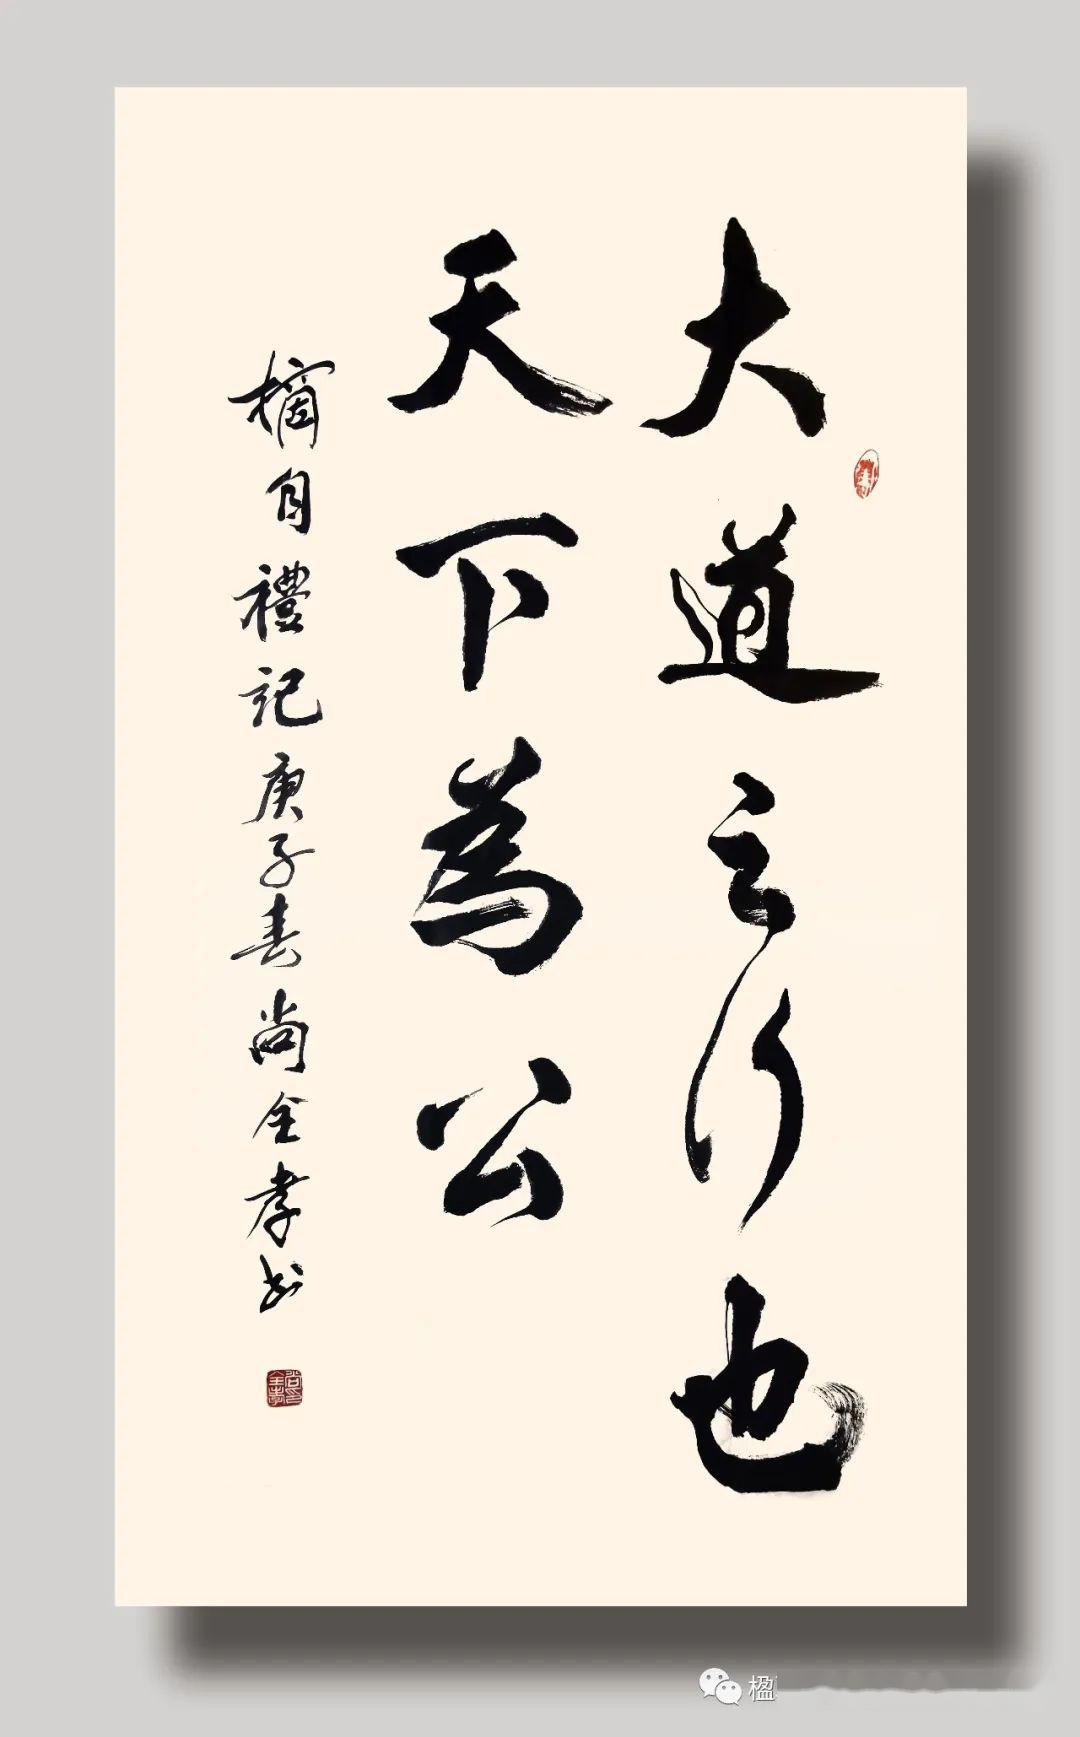 大道之行也
天下為公
摘自禮記庚子春尚全孝书
尚印全孝
楹